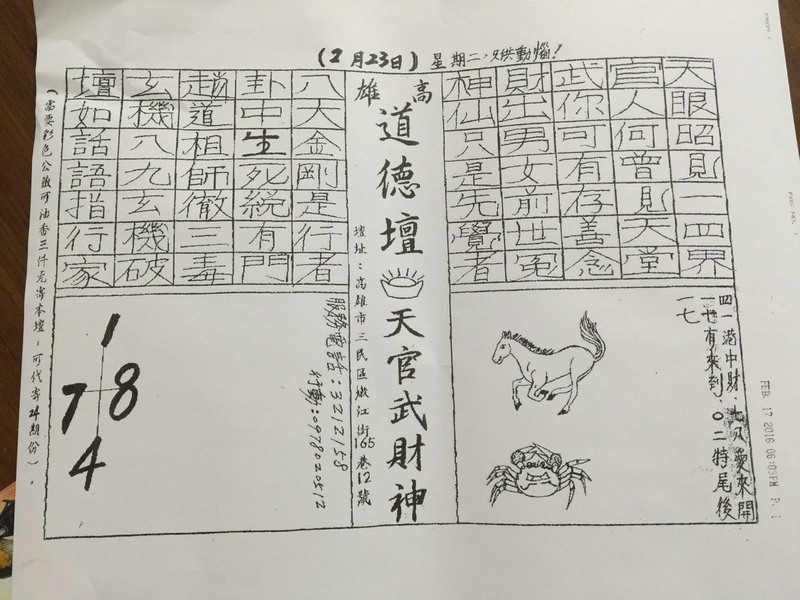 (2月23日)星期二,只供動惱!
天眼昭則一四界
官人何曾則天堂
武你可有存善念
財出男女前世冤
神仙只是先覺者
高雄
道德壇 天官武財神
壇址:高雄市三民區嫩江街165巷12號
八大金剛是行者
卦中生死統有門
趙道祖師徹三毒
玄機八九玄機破
壇如話語措行家
四一港中財
一七有來到.0二特尾後
一七
服務電話:3212158
行動:0978020512
1
7 8
4
(需要彩色公藏可油香三仟元寄本壇,可代寄24期份)。
FEB. 17 2016 06:09PM P. 1